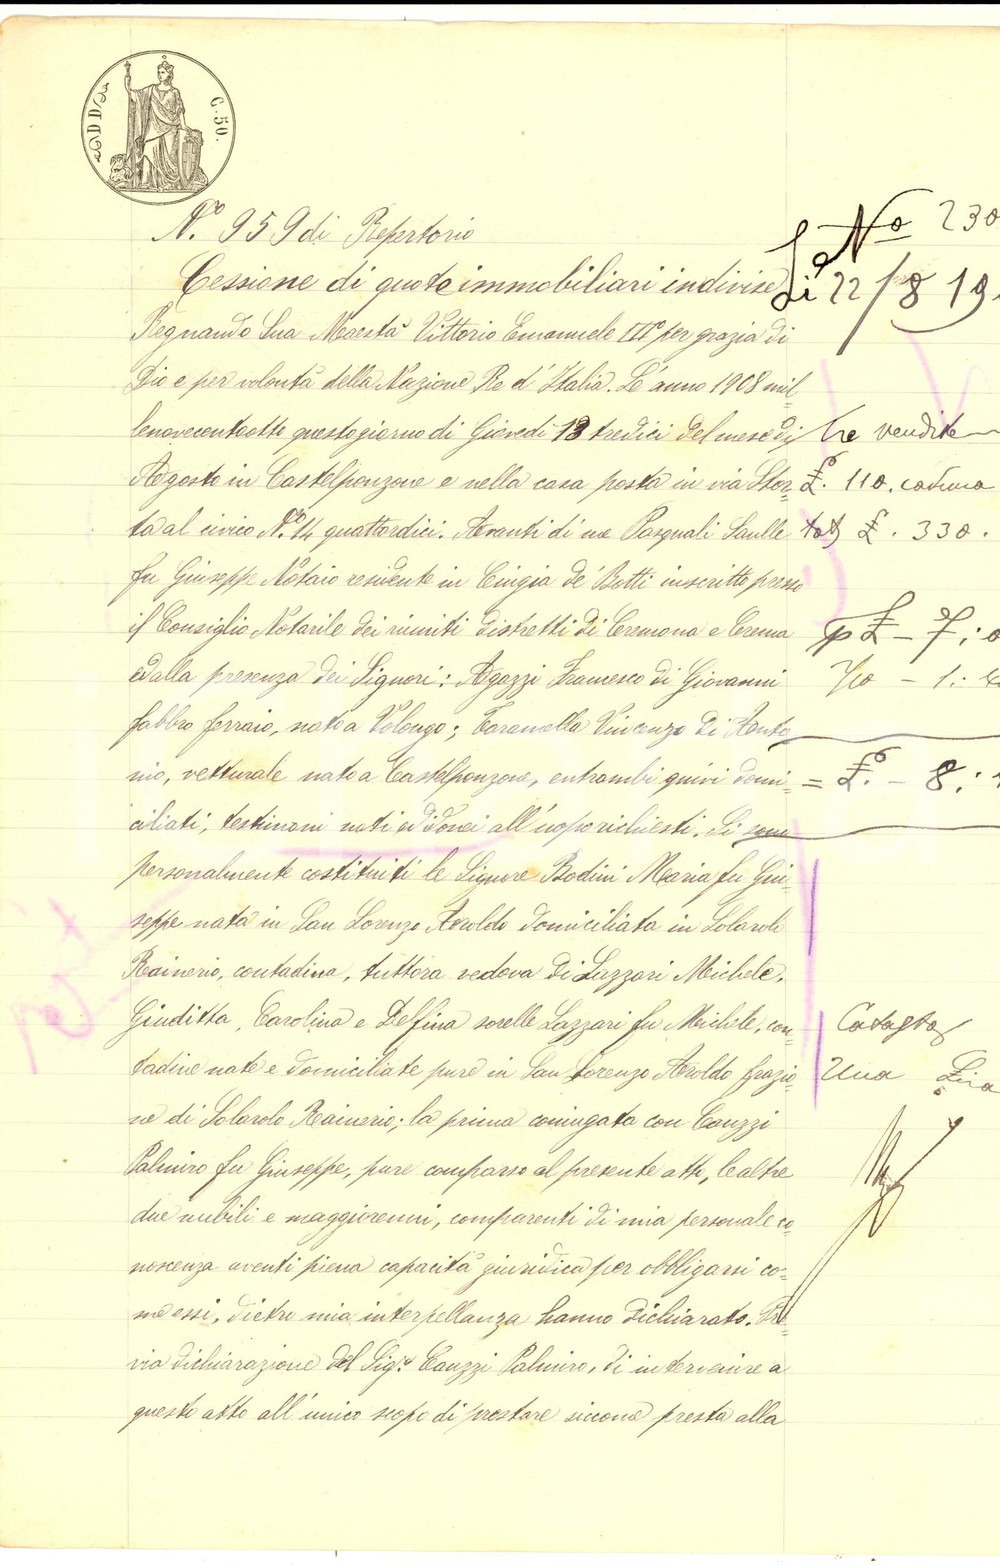 C. 50.
N.º 959 di Repertorio
Cessione di quote immobiliari indivise
Regnando Sua Maestà Vittorio Emanuele IIIº per grazia di
Dio e per volontà della Nazione Re d'Italia. L'anno 1908 mil=
lenovecentootto questo giorno di Giovedì 13 tredici del mese di
Agosto in Castelponzone e nella casa posta in via Stor=
ta al civico N.º 14 quattordici. Avanti di me Pasquali Saulle
fu Giuseppe Notaio residente in Cingia de' Botti inscritto presso
il Consiglio Notarile dei riuniti distretti di Cremona e Crema
ed alla presenza dei Signori: Agazzi Francesco di Giovanni
fabbro ferraio, nato a Volongo; Taranella Vincenzo di Anto=
nio, vetturale nato a Castelponzone, entrambi quivi domi=
ciliati, testimoni noti ed idonei all'uopo richiesti. Si sono
personalmente costituiti le Signore Bodini Maria fu Giu=
seppe nata in San Lorenzo Aroldo domiciliata in Solarolo
Rainerio, contadina, tuttora vedova di Lazzari Michele.
Giuditta, Carolina e Delfina sorelle Lazzari fu Michele, con=
tadine nate e domiciliate pure in San Lorenzo Aroldo frazio=
ne di Solarolo Rainerio; la prima coniugata con Cauzzi
Palmiro fu Giuseppe, pure comparso al presente atto, le altre
due nubili e maggiorenni, comparenti di mia personale co=
noscenza aventi piena capacità giuridica per obbligarsi co=
me essi, dietro mia interpellanza hanno dichiarato. Pre=
via dichiarazione del Sig.r Cauzzi Palmiro, di intervenire a
questo atto all'unico scopo di prestare siccome presta alla
Nº 230
Li 22/8 19
tre vendite
£. 110. caduna
tot £. 330.
£ - 7:
7/10 - 1:
= £. - 8:
Catasto
Una Lira